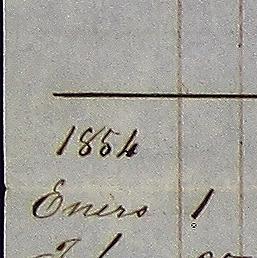 1854
Enero 1